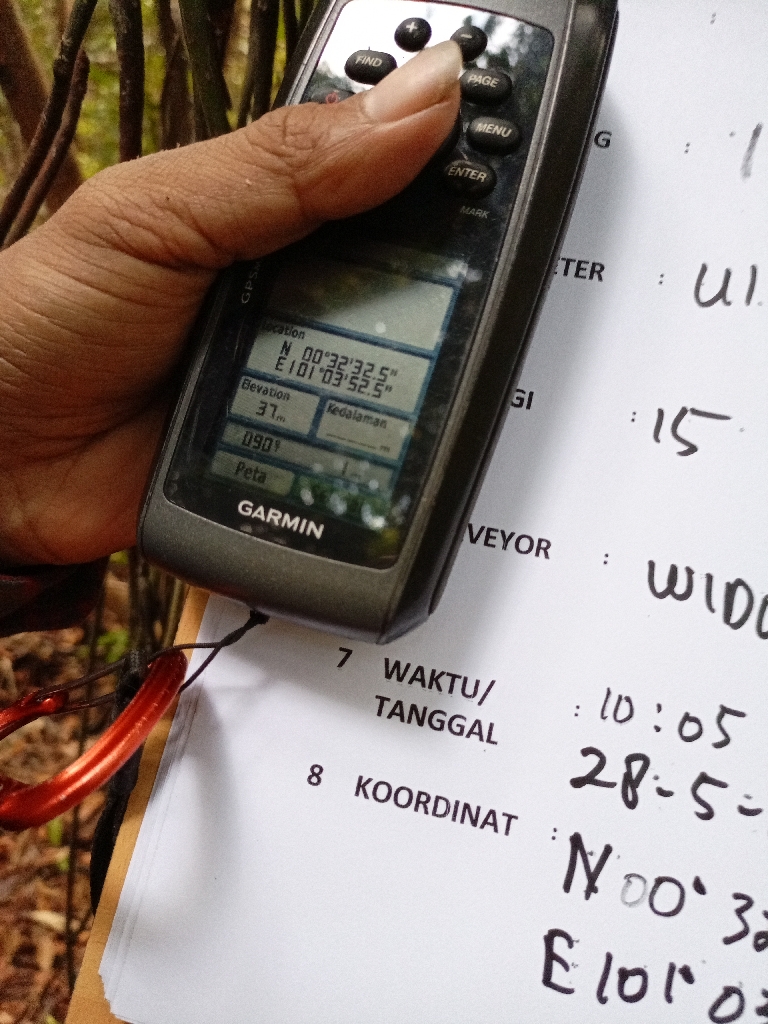 + -
FIND PAGE
MENU
ENTER
MARK
Location
N 00°32'32.5"
E101°03'52.5"
Elevation Kedalaman
37m _____m
090°
Peta
GARMIN
G : 1
ETER : U1
GI : 15
VEYOR : WIDO
7 WAKTU/ : 10:05
TANGGAL 28-5-
8 KOORDINAT : N 00° 32
E 101° 03